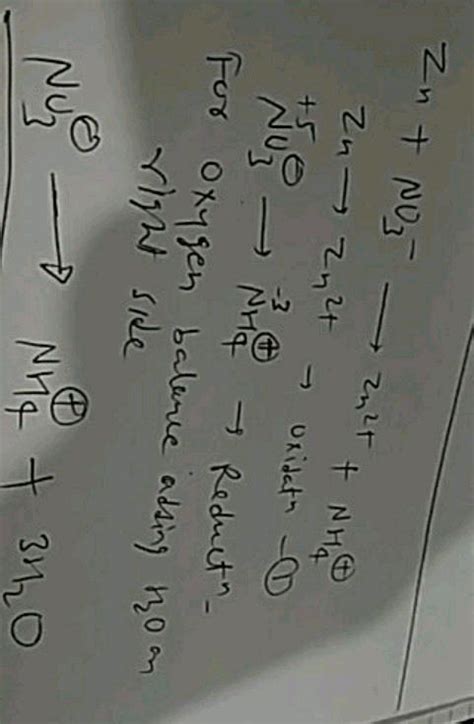 Zn + NO₃⁻ → Zn²⁺ + NH₄⊕
Zn → Zn²⁺ → oxidatⁿ - ①
+5 NO₃⊖ → -3 NH₄⊕ → Reductⁿ -
For oxygen balance adding H₂O on
right side
NO₃⊖ → NH₄⊕ + 3H₂O